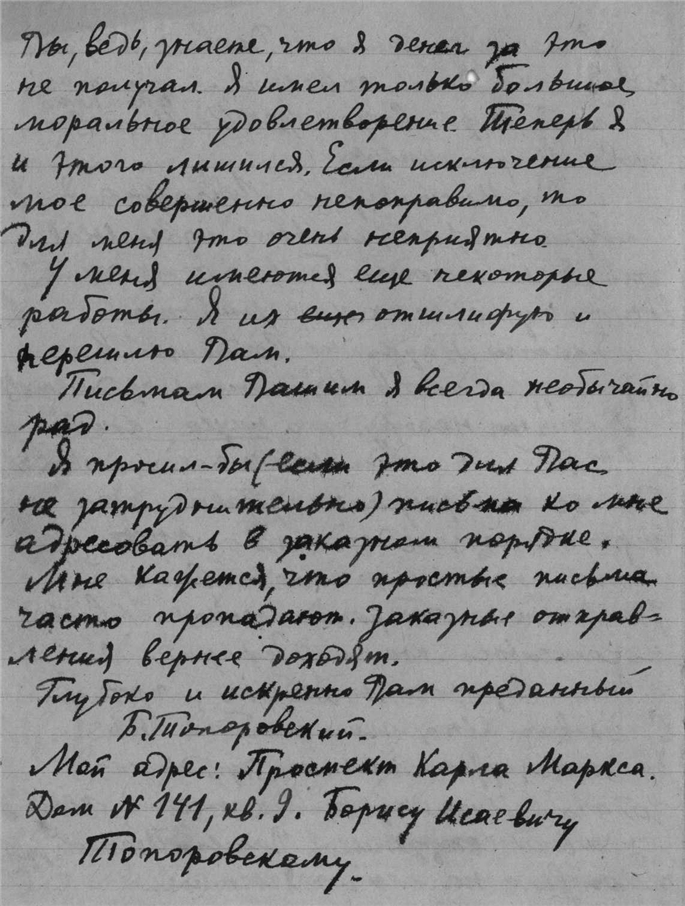 Вы, ведь, знаете, что я денег за это
не получал. Я имел только большое
моральное удовлетворение. Теперь я
и этого лишился. Если исключение
мое совершенно непоправимо, то
для меня это очень неприятно.
У меня имеются еще некоторые
работы. Я их отшлифую и
перешлю Вам.
Письмам Вашим я всегда необычайно
рад.
Я просил-бы (если это для Вас
не затруднительно) письма ко мне
адресовать в заказном порядке.
Мне кажется, что простые письма
часто пропадают. Заказные отправ=
ления вернее доходят.
Глубоко и искренно Вам преданный
Б. Топоровский.
Мой адрес: Проспект Карла Маркса.
Дом № 141, кв. 9. Борису Исаевичу
Топоровскому.